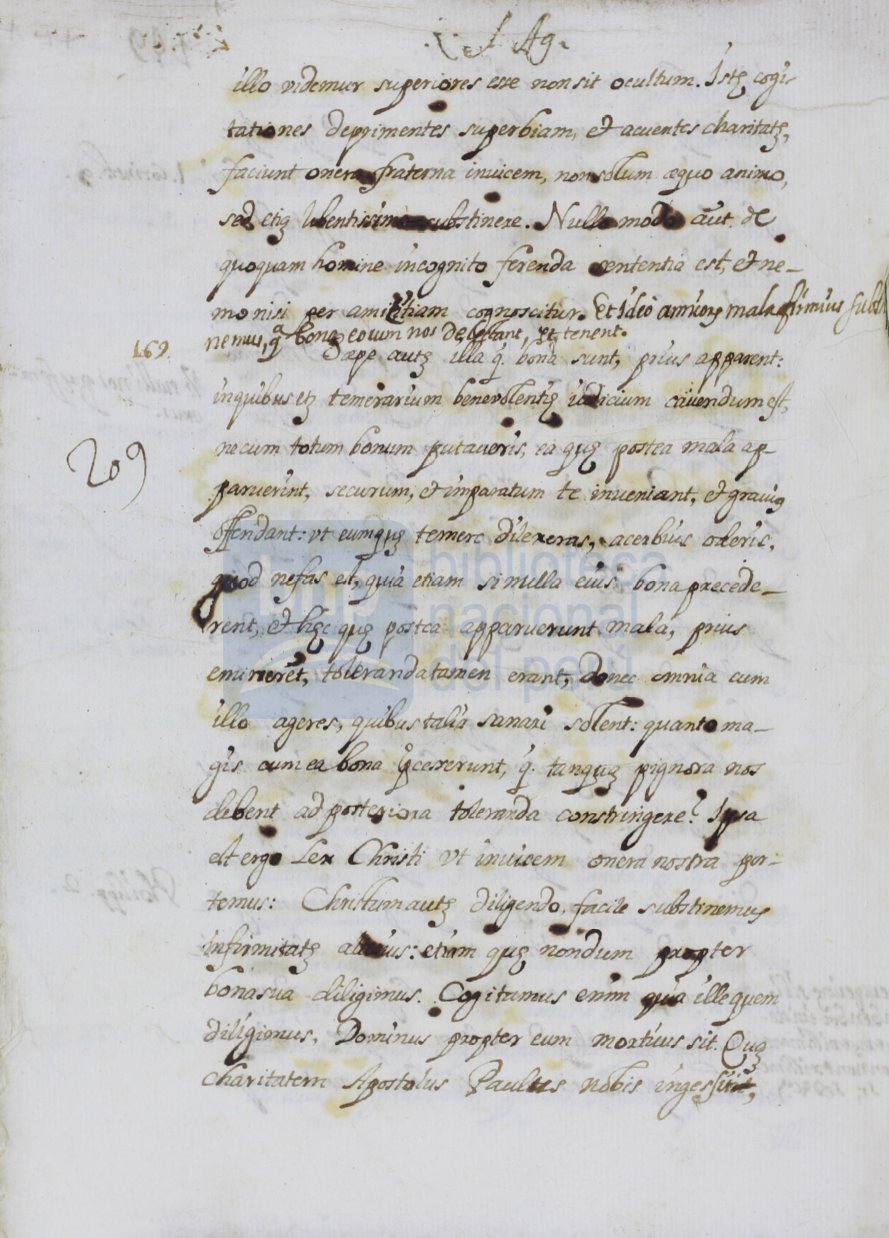 S. Ag.
illo videmur superiores esse non sit ocultum. Istę cogi-
tationes deprimentes superbiam, et acuentes charitatę,
faciunt onera fraterna invicem, non solum æquo animo,
sed etią libentissime substinere. Nullo modo aūt. de
quoquam homine incognito ferenda sententia est, et ne-
mo nisi per amicitiam cognoscitur. Et ideo amicorų mala firmius substi
nemus, q̃ bona eorum nos delectant, et tenent.
169.
Sæpe autę illa q̨ bona sunt, prius apparent:
in quibus etę temerarium benevolentię iudicium cavendum est,
ne cum totum bonum putaveris, ea quę postea mala ap-
paruerint, securum, et imparatum te inveniant, et gravius
209
offendant: ut eumquę temere dilexeras, acerbius oderis,
quod nefas est, quia etiam si nulla eius bona precede-
rent, et hęc quę postea apparuerunt mala, prius
eminerēt, toleranda tamen erant, donec omnia cum
illo ageres, quibus talia sanari solent: quanto ma-
gis cum ea bona p̃cesserunt, q̨ tanquą pignora nos
debent ad posteriora toleranda constringere? Ipsa
est ergo Lex Christi vt invicem onera nostra por-
temus: Christum autę diligendo, facile substinemus
infirmitatę alterius: etiam quę nondum propter
bona sua diligimus. Cogitamus enim quia ille quem
diligimus, Dominus propter eum mortuus sit. Quą
charitatem Apostolus Paulus nobis ingessit,
biblioteca
nacional
del perú